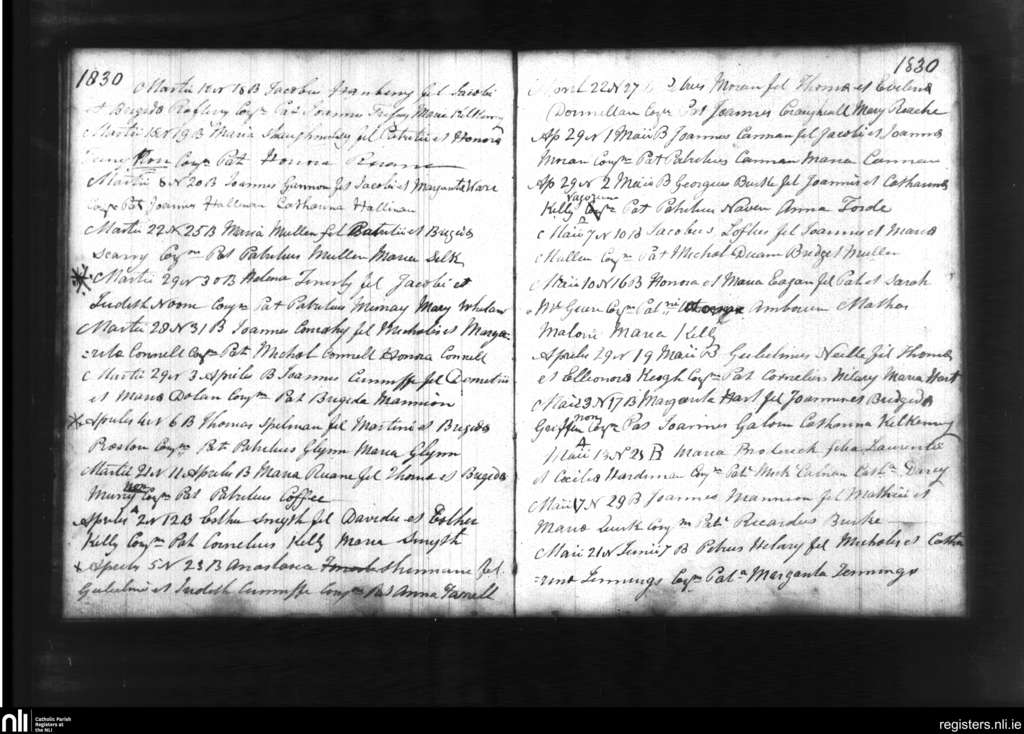 1830
Martii 12 N 18 B Jacobus fil Jacobi
et Brigida Conjm Pat Joannes Maria Kilkenny
Martii 18 N 19 B Maria Shaughnessy fil Patritii et Honora
non Conjm Pat Honora
Martii 8 N 20 B Joannes Gannon fil Jacobi et Margarita Ware
Conjm Pat Joannes Hallinan Catharina Hallinan
Martii 22 N 25 B Maria Mullen fil Patritii et Brigida
Scarry Conjm Pat Patritius Mullen Maria Silk
Martii 29 N 30 B Helena fil Jacobi et
Judith Noone Conjm Pat Patritius Murray Mary Whelan
Martii 28 N 31 B Joannes Conroy fil Micholis et Marga-
=rita Connell Conjm Patni Michol Connell Honora Connell
Martii 29 N 3 Aprilis B Joannes Cunniffe fil Demetrii
et Maria Dolan Conjm Pat Brigida Mannion
Aprilis 4 N 6 B Thomas Spelman fil Martini et Brigida
Conjm Pat Patritius Glynn Maria Glynn
Martii 21 N 11 Aprilis B Maria Ruane fil Thoma et Brigida
non Conjm Pat Patritius Coffee
Aprilis 2 N 12 B Esther Smyth fil Davidis et Esther
Kelly Conjm Pat Cornelius Kelly Maria Smyth
Aprilis 5 N 23 B Anastasia Shennane fil
Gulielmi et Judith Cunniffe Conjm Pat Anna Farrell
1830
April 22 N 27 Moran fil Thoma et Evelina
Donnellan Conjm Pat Joannes Mary Roache
Ap 29 N 1 Maii B Joannes Cannan fil Jacobi et Joanna
Moran Conjm Pat Patritius Cannan Maria Cannan
Ap 29 N 2 Maii B Georgius Burke fil Joannis et Catharina
Kelly Pat Patritius Naven Anna Forde
Maii 7 N 10 B Jacobus Loftus fil Joannis et Maria
Mullen Conjm Pat Michol Duane Bridget Mullen
Maii 10 N 16 B Honora et Maria Eagan fil Pat et Sarah
Conjm Patni
Malone Maria Kelly
Aprilis 29 N 19 Maii B Gulielmus Neille fil Thoma
et Elleonora Keogh Conjm Pat Cornelius Hilary Maria Hart
Maii 3 N 17 B Margarita Hart fil Joannis et Bridgida
Griffin non Conjm Pat Joannes Galvin Catharina Kilkenny
Maii 13 N 23 B Maria Broderick filia Laurentii
et Cecilia Hardiman Conjm Patni Cath Darcy
Maii 17 N 29 B Joannes Mannion fil Mathiae et
Maria Conjm Pat Ricardus Burke
Maii 21 N Junii 7 B Petrus Hilary fil Micholis et Catha
=rina Jennings Conjm Pata Margarita Jennings
nli
Catholic Parish
Registers at
the NLI
registers.nli.ie